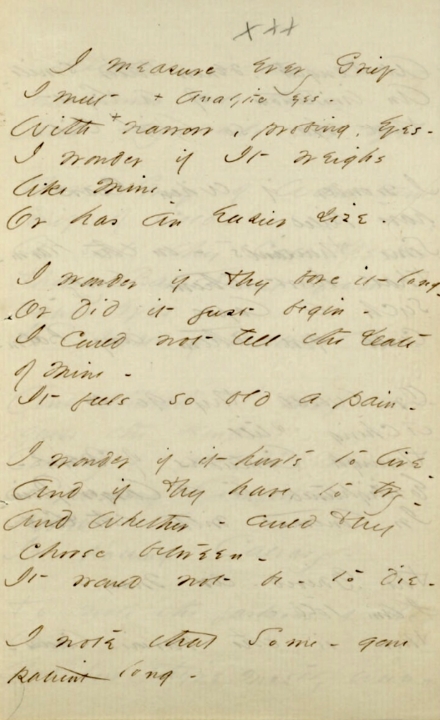 xxx
I measure Every Grief
I meet + Analytic eyes -
With + narrow, probing, Eyes -
I wonder if It weighs
like Mine -
Or has an Easier size -
I wonder if They bore it long -
Or did it just begin -
I could not tell the Date
of Mine -
It feels so old a pain -
I wonder if it hurts to live -
And if They have to try -
And whether - could They
choose between -
It would not be - to die -
I note that Some - gone
patient long -